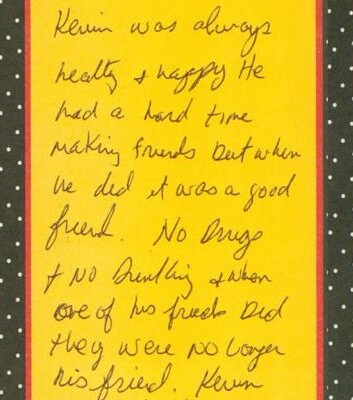 Kevin was always
healty + happy He
had a hard time
making friends but when
he did it was a good
friend. No Drugs
+ No Drinking + when
one of his friends Did
they were No longer
his friend. Kevin